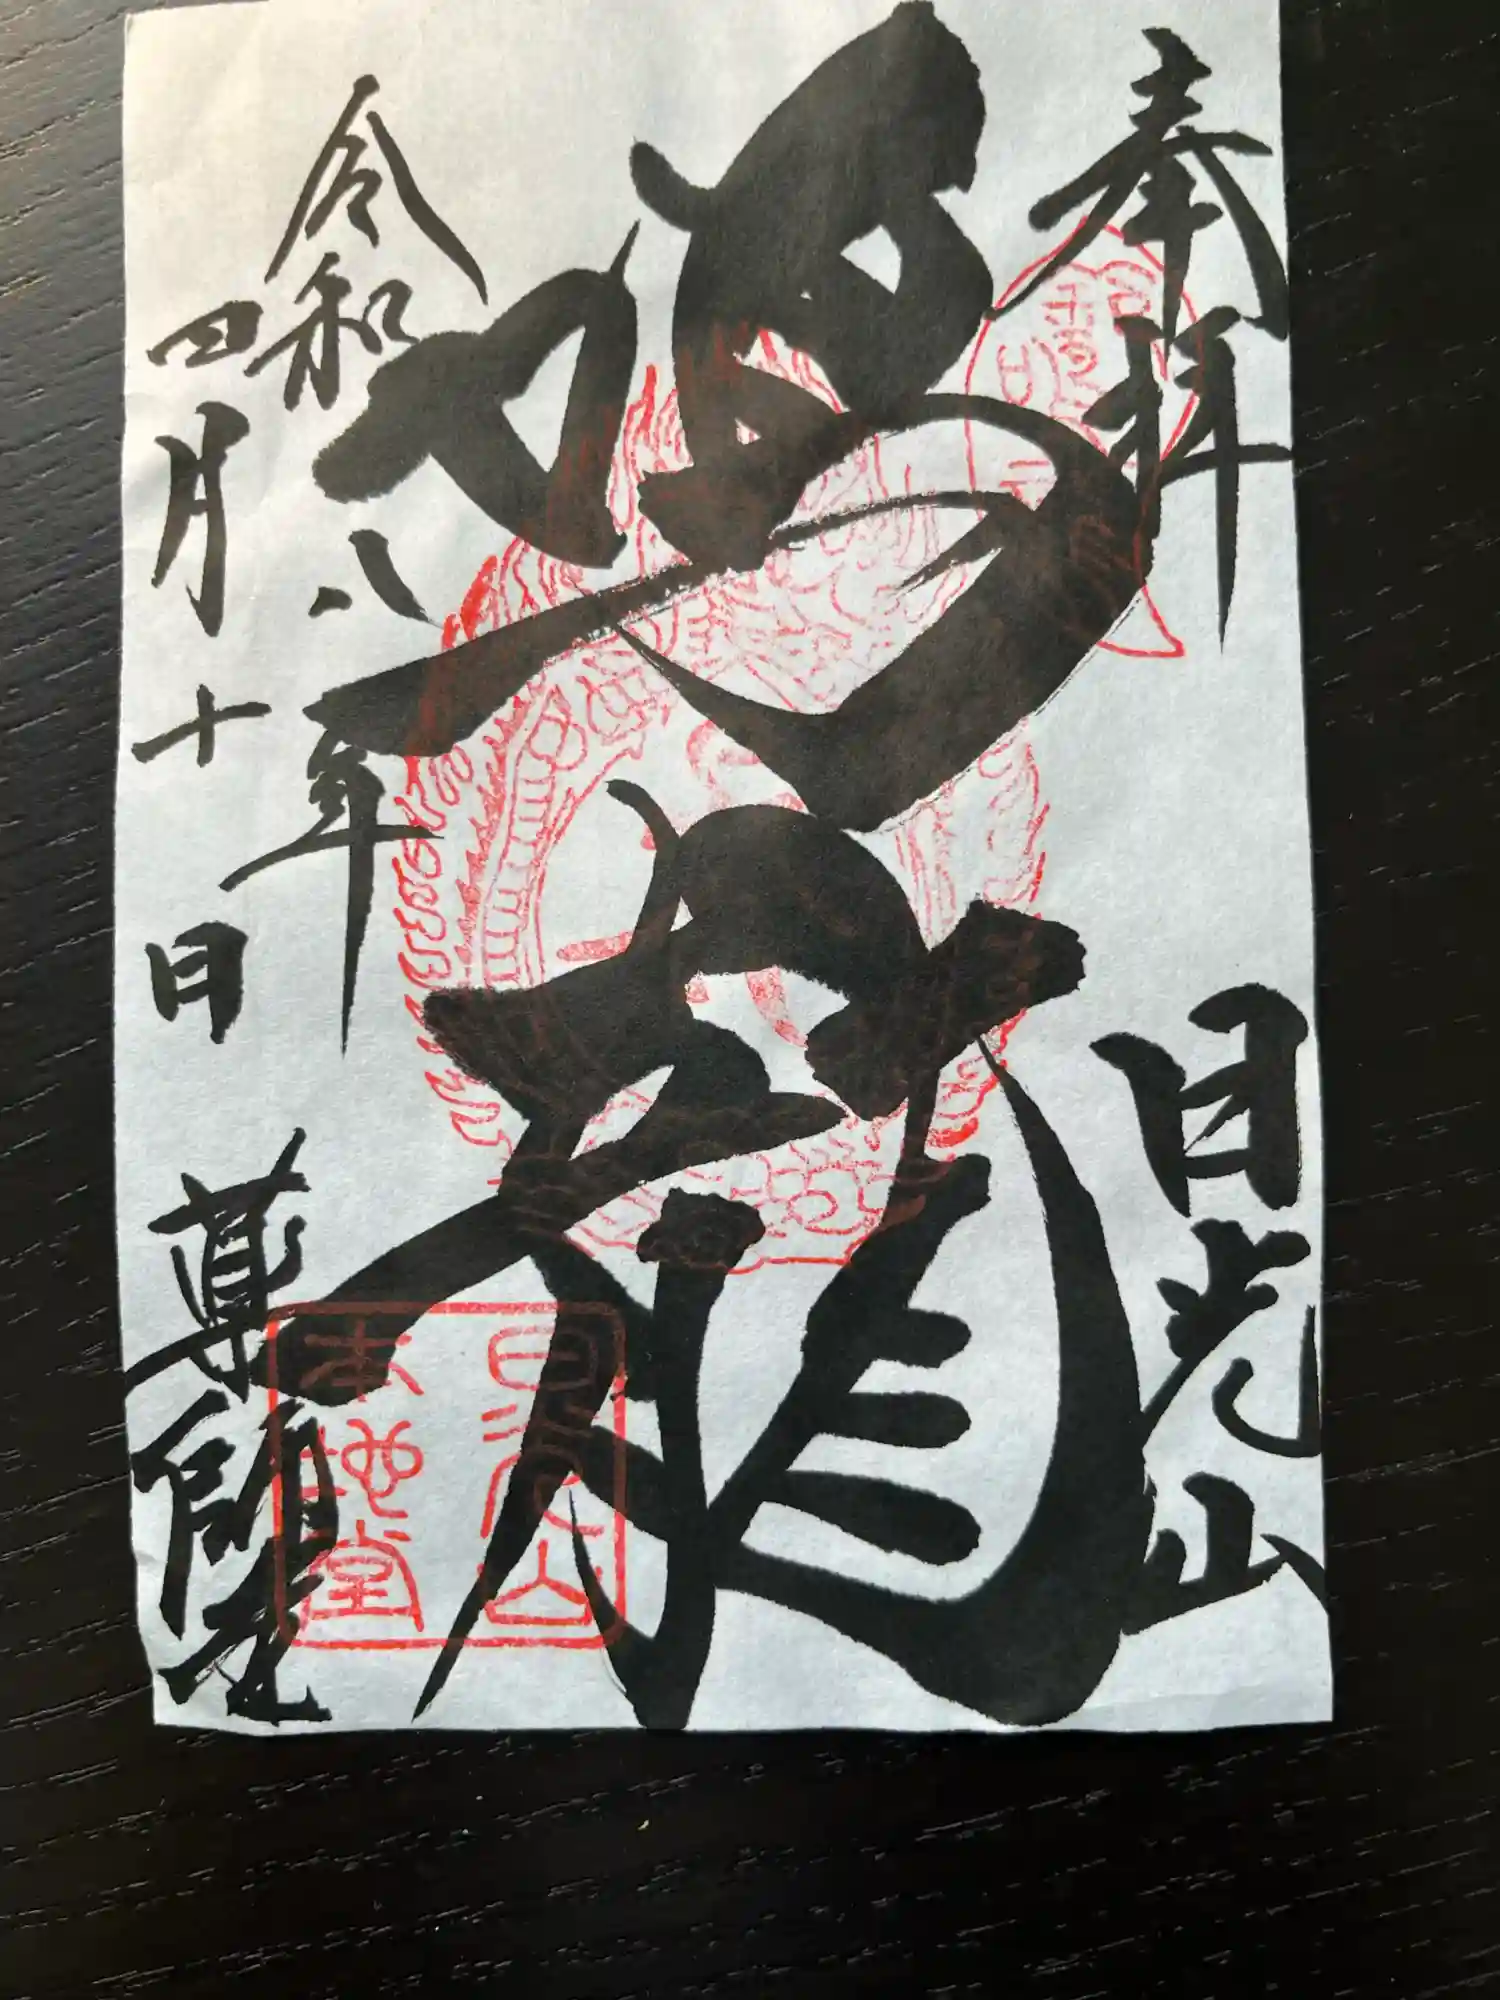 奉拝 日光山
鳴龍
令和八年
四月十日 薬師堂
日光山
本地堂